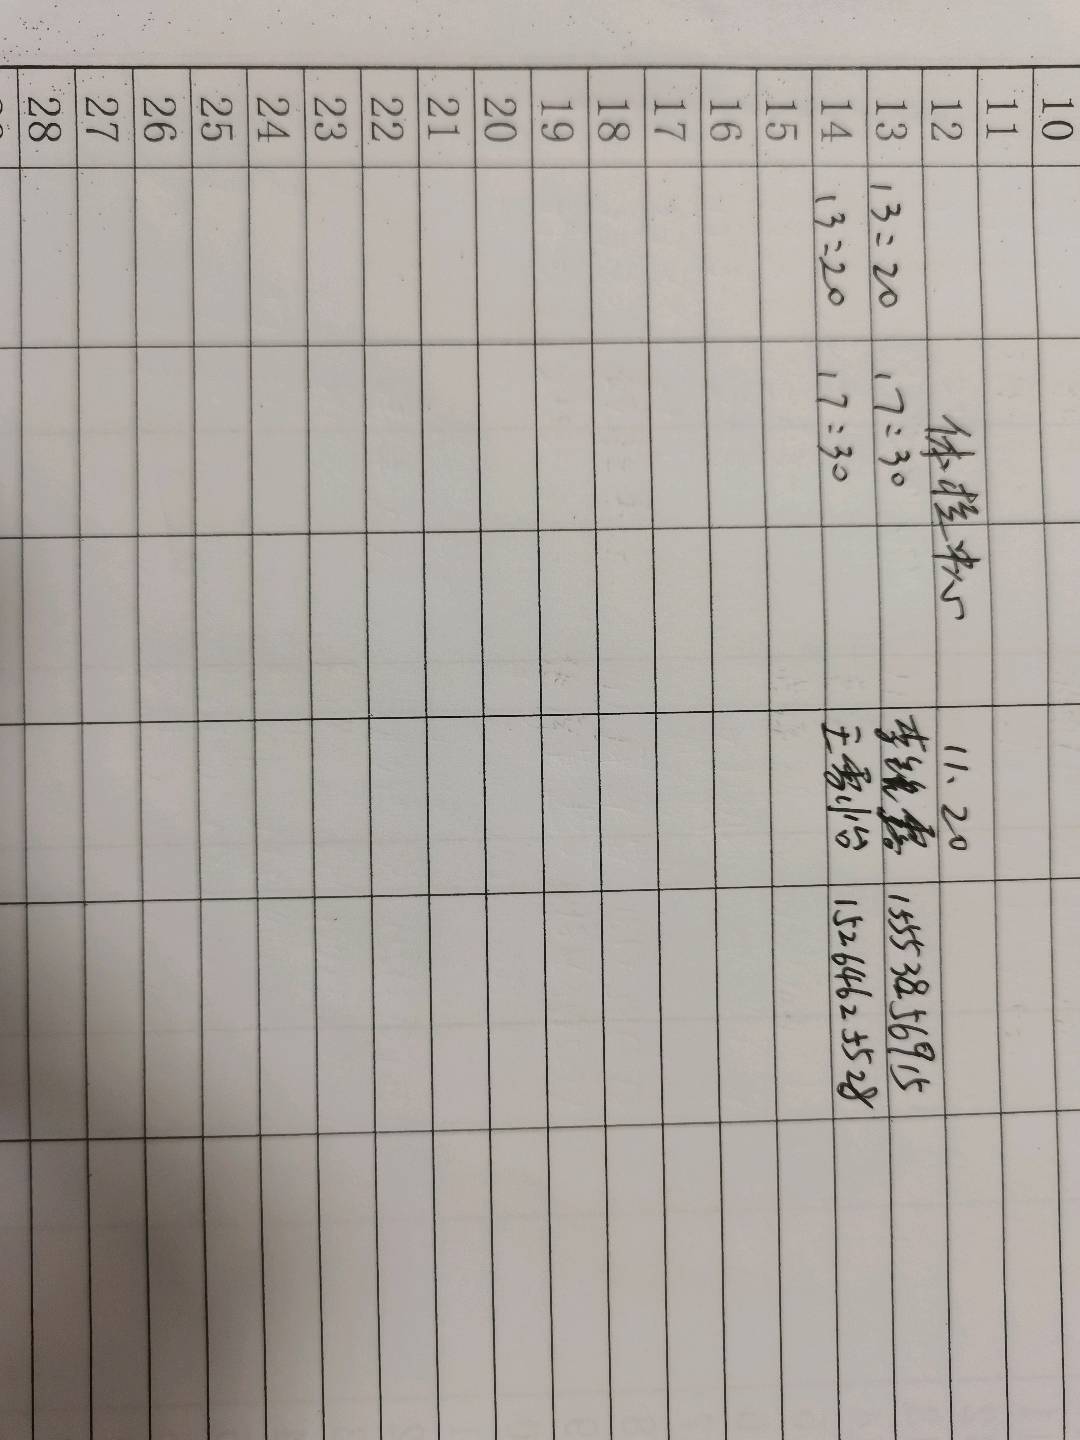 10
11
12 体检中心 11、20
13 13:20 17:30 15553856915
14 13:20 17:30 15264623528
15
16
17
18
19
20
21
22
23
24
25
26
27
28